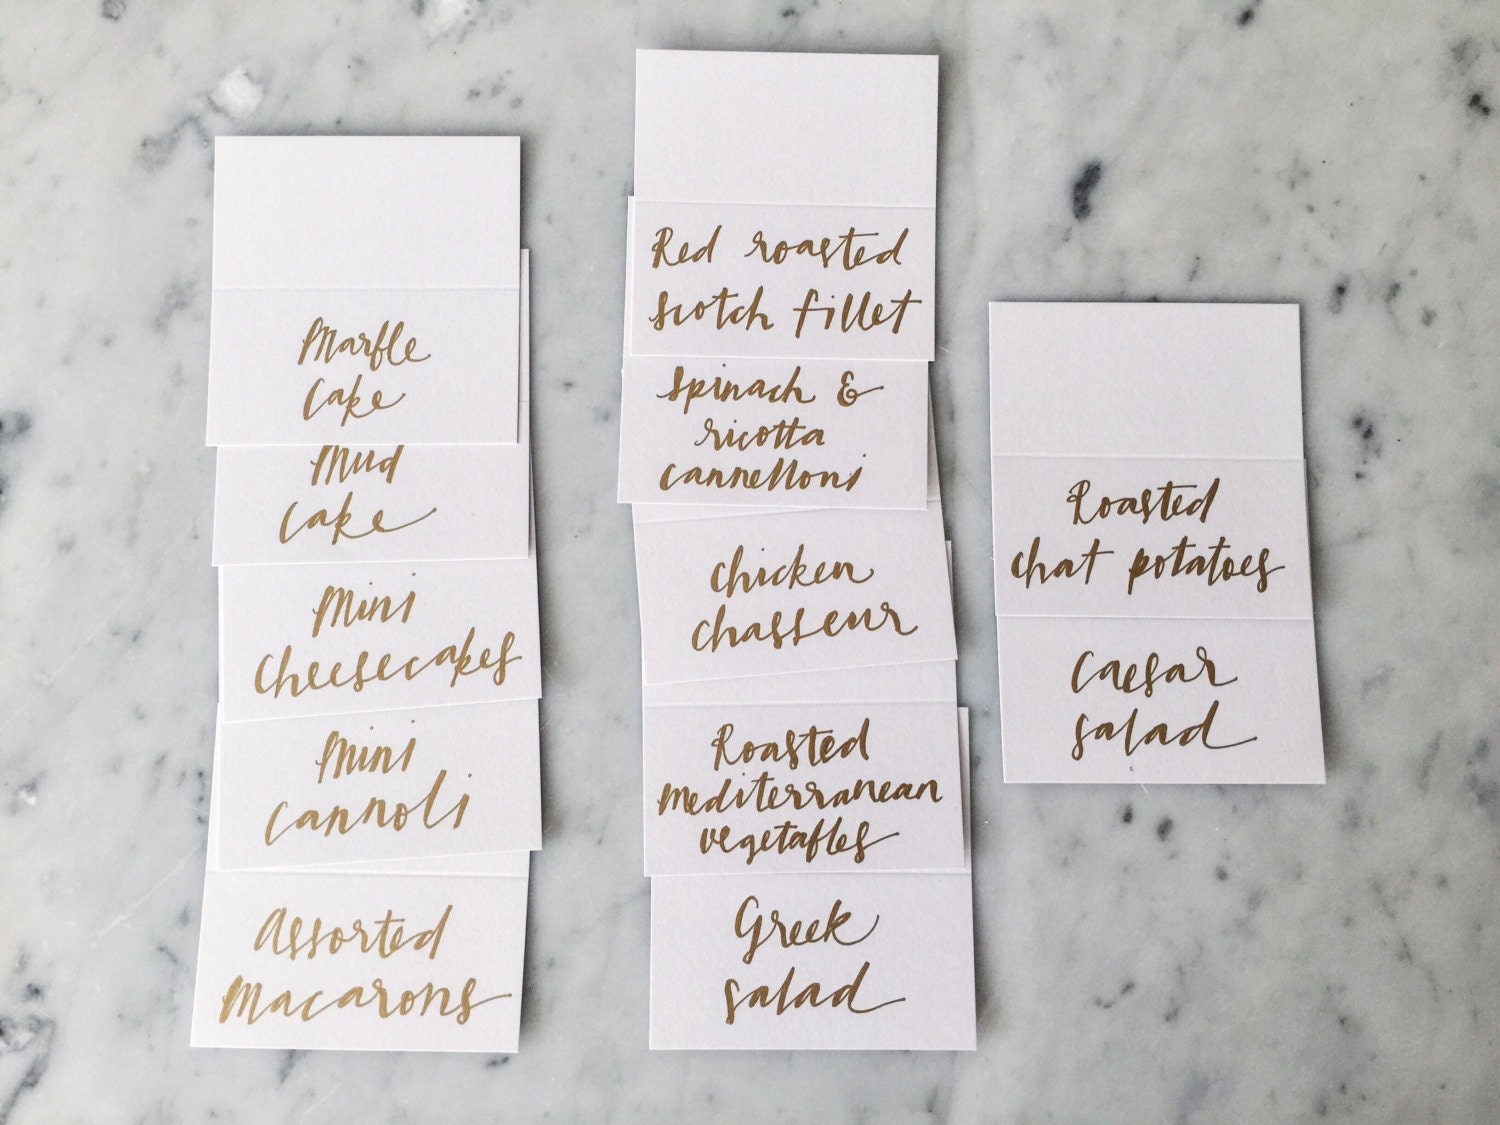 Marble
Cake
Mud
Cake
Mini
Cheesecakes
Mini
Cannoli
Assorted
Macarons
Red roasted
scotch fillet
Spinach &
ricotta
cannelloni
Chicken
chasseur
Roasted
Mediterranean
vegetables
Greek
salad
Roasted
chat potatoes
Caesar
salad